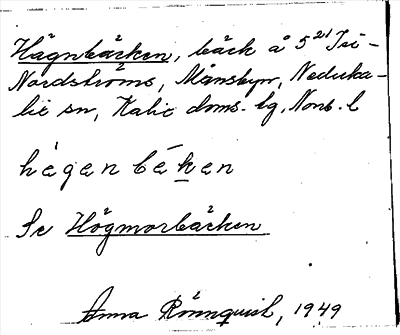 Hägnbäcken, bäck å 5²¹ Isi-
Nordströms, Månsbyn, Nederka-
lix sn, Kalix doms. lg, Norrb. l
hègenbéken
Se Högmorbäcken
Anna Rönnquist, 1949